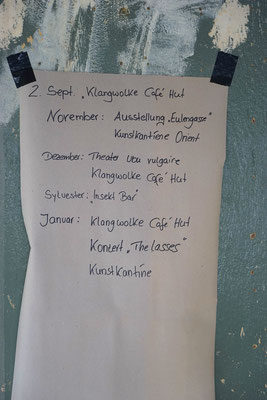 2. Sept. „Klangwolke Café Hut
November: Ausstellung „Eulengasse"
Kunstkantiene Orient
Dezember: Theater vou vulgaire
Klangwolke Café Hut
Sylvester: „Insekt Bar"
Januar: Klangwolke Café Hut
Konzert „The lasses"
Kunstkantine